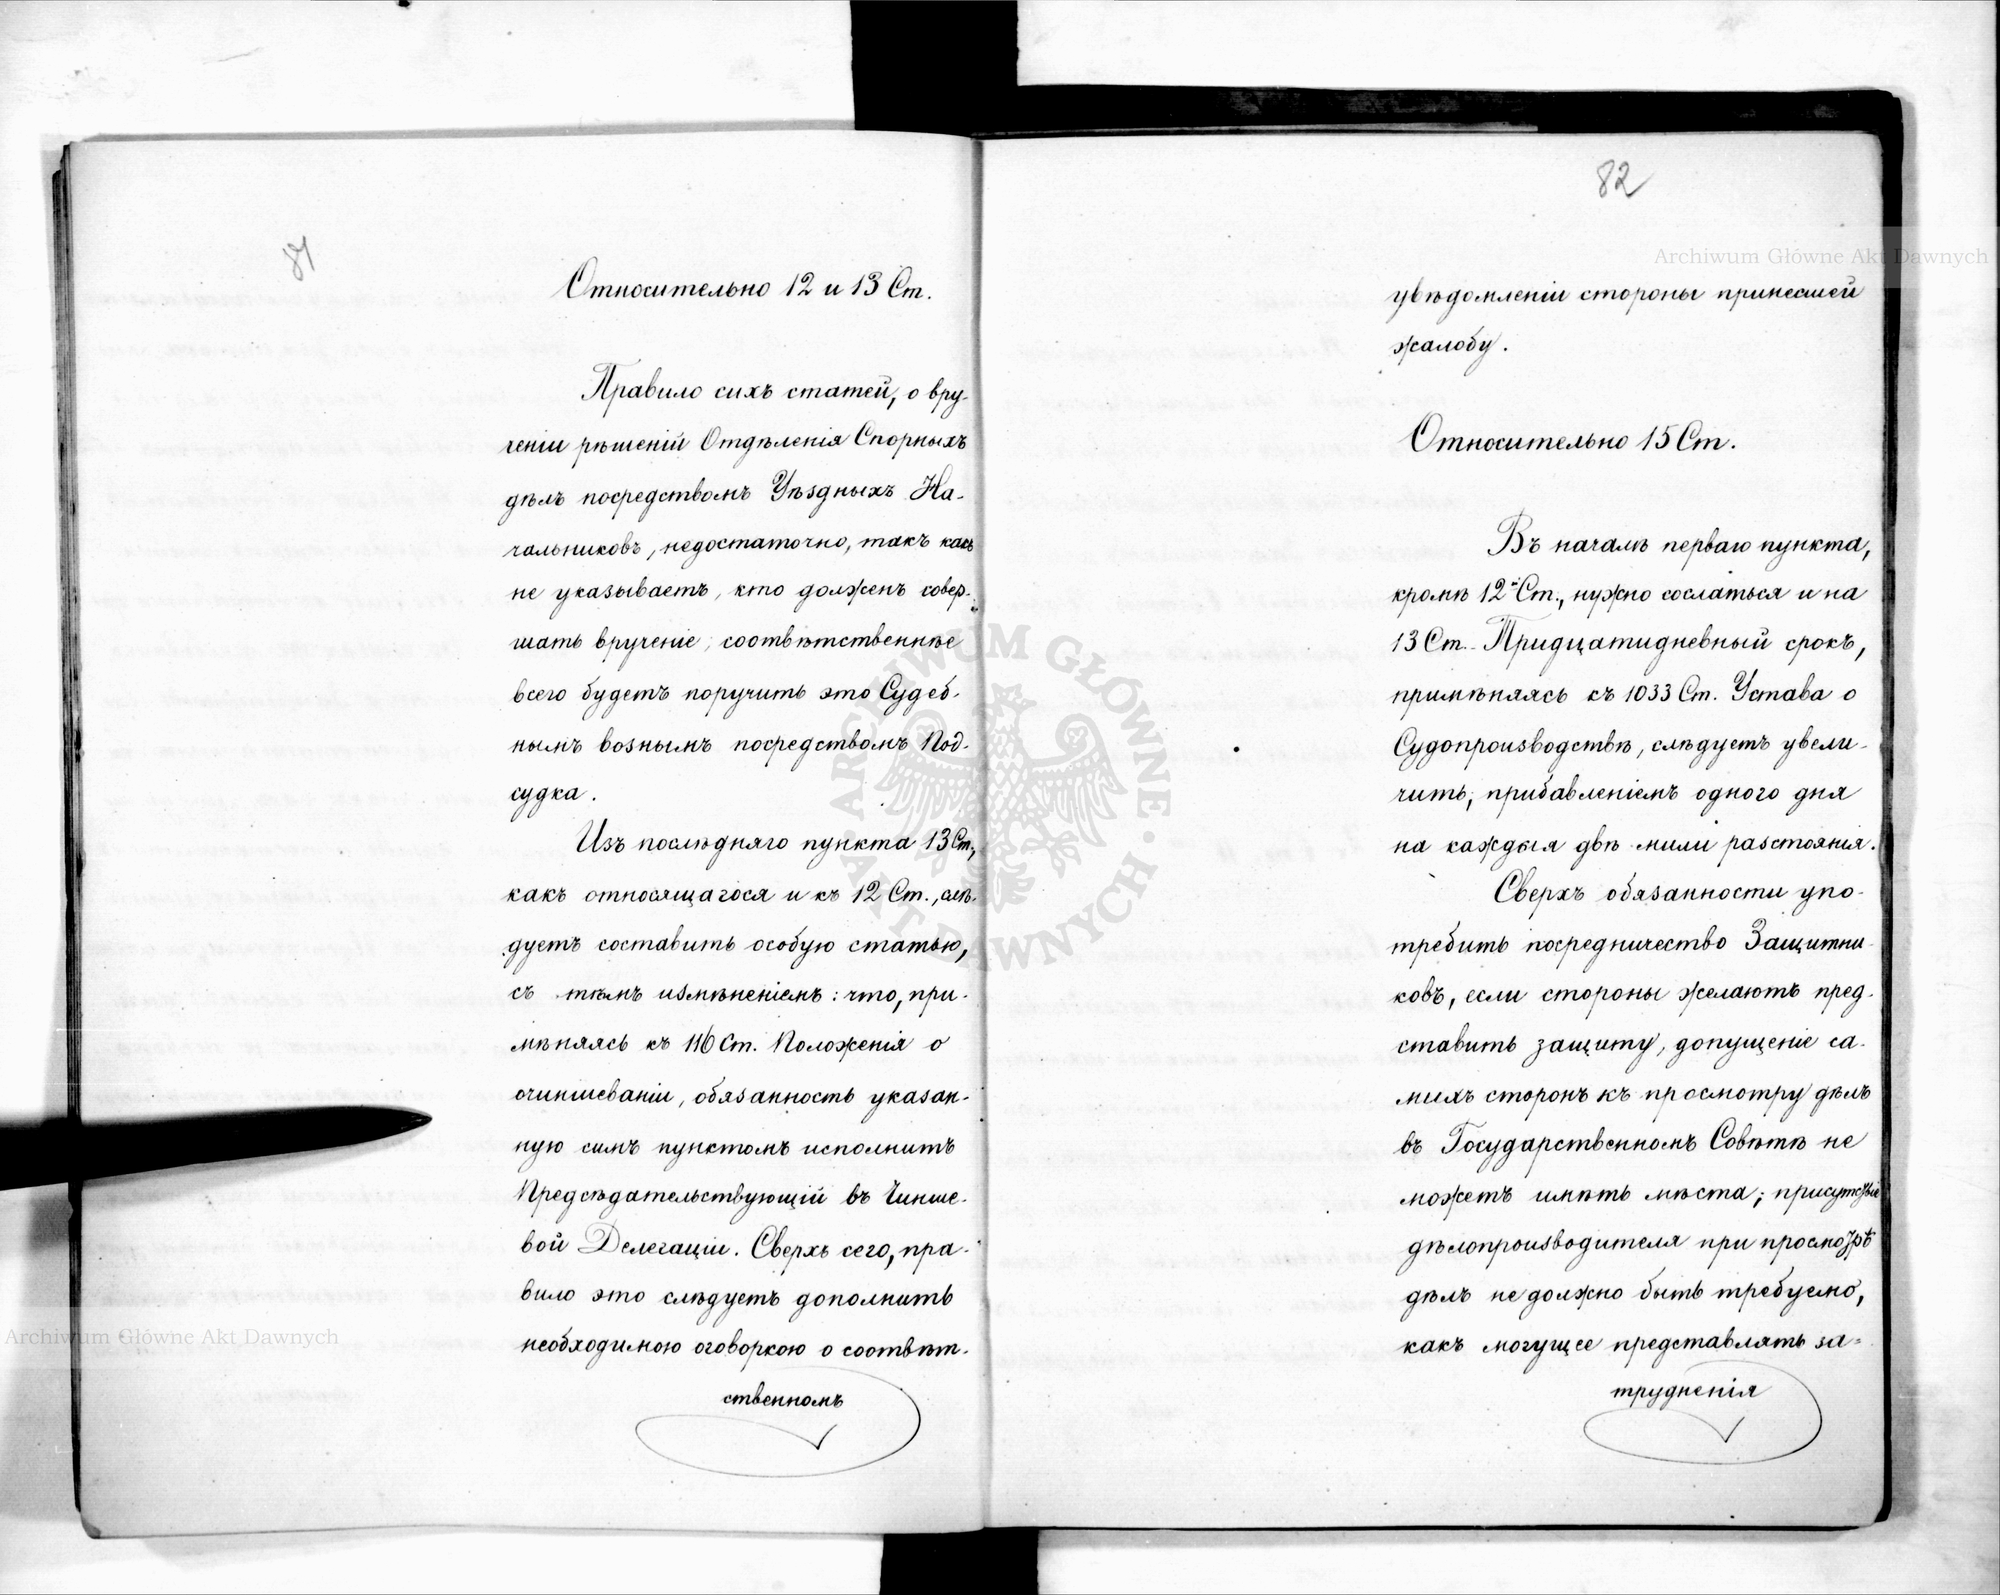 81
Относительно 12 и 13 Ст.
Правило сихъ статей, о вру-
ченіи рѣшеній Отдѣленія Спорныхъ
дѣлъ посредствомъ Уѣздныхъ На-
чальниковъ, недостаточно, такъ какъ
не указываетъ, кто долженъ совер-
шать врученіе; соотвѣтственнѣе
всего будетъ поручить это Судеб-
нымъ вознымъ посредствомъ Под-
судка.
Изъ послѣдняго пункта 13 Ст.,
какъ относящагося и къ 12 Ст., слѣ-
дуетъ составить особую статью,
съ тѣмъ измѣненіемъ: что, при-
мѣняясь къ 116 Ст. Положенія о
очиншеваніи, обязанность указан-
ную симъ пунктомъ исполнитъ
Предсѣдательствующій въ Чинше-
вой Делегаціи. Сверхъ сего, пра-
вило это слѣдуетъ дополнить
необходимою оговоркою о соотвѣт-
ственномъ
82
увѣдомленіи стороны принесшей
жалобу.
Относительно 15 Ст.
Въ началѣ перваго пункта,
кромѣ 12 Ст., нужно сослаться и на
13 Ст. Тридцатидневный срокъ,
примѣняясь къ 1033 Ст. Устава о
Судопроизводствѣ, слѣдуетъ увели-
чить, прибавленіемъ одного дня
на каждыя двѣ мили разстоянія.
Сверхъ обязанности упо-
требить посредничество Защитни-
ковъ, если стороны желаютъ пред-
ставить защиту, допущеніе са-
михъ сторонъ къ просмотру дѣлъ
въ Государственномъ Совѣтѣ не
можетъ имѣть мѣста; присутствіе
дѣлопроизводителя при просмотрѣ
дѣлъ не должно быть требуемо,
какъ могущее представлять за-
трудненія
Archiwum Główne Akt Dawnych
Archiwum Główne Akt Dawnych
ARCHIWUM GŁÓWNE AKT DAWNYCH